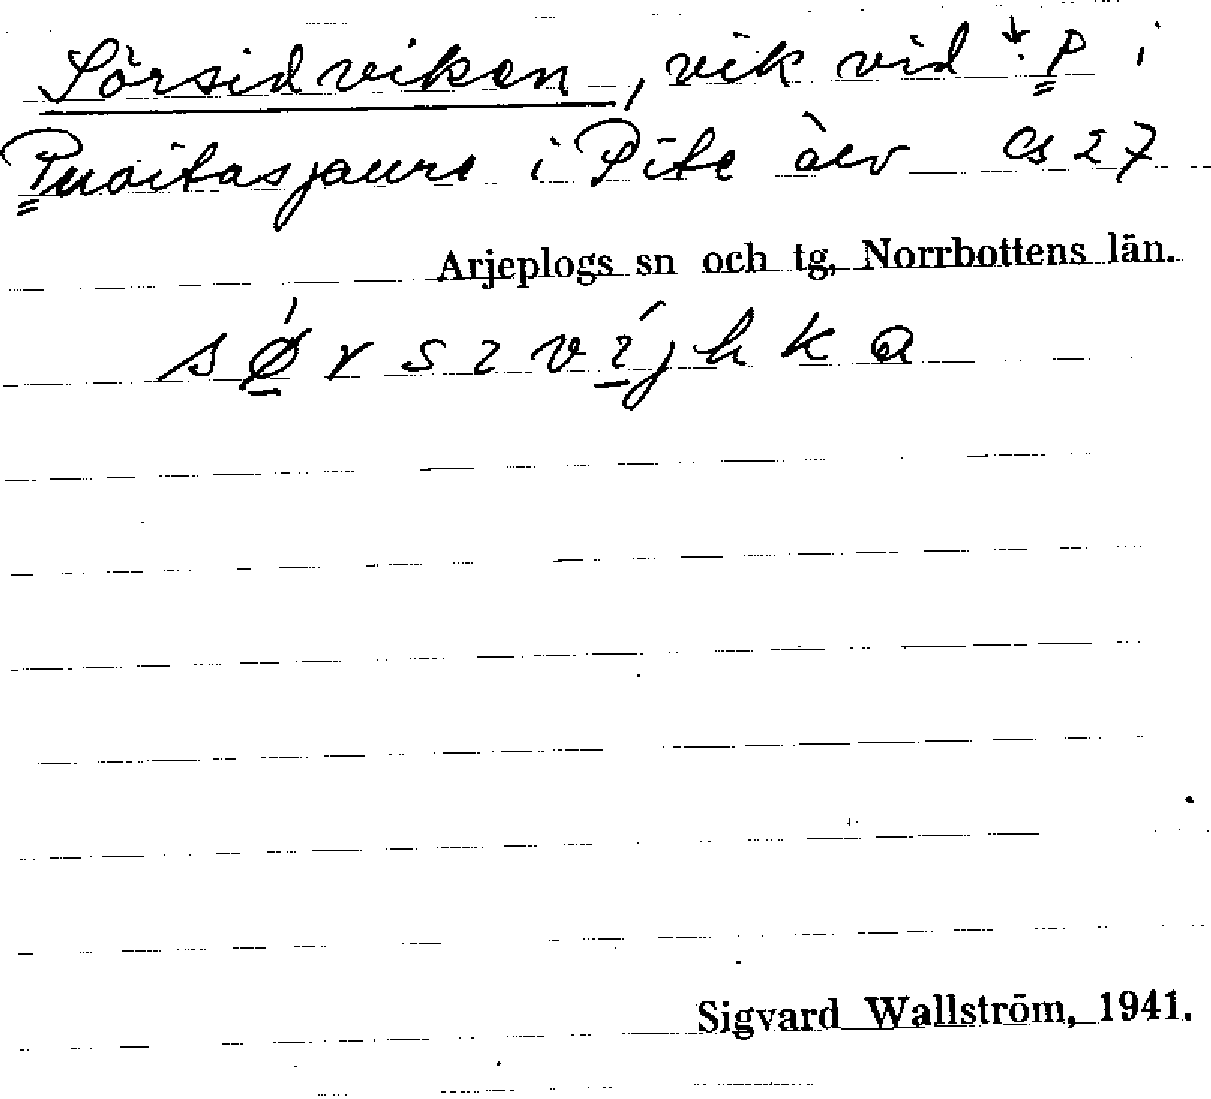 Sörsidviken, vik vid ↓: P i
Puoitasjaure i Pite älv Cs 27
Arjeplogs sn och tg, Norrbottens län.
sǿ̱rsɩvɩ̱́jhka
Sigvard Wallström, 1941.